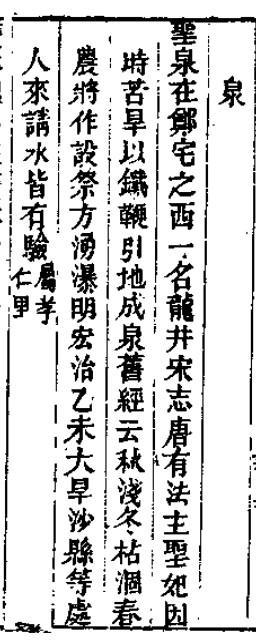 泉
聖泉在鄭宅之西一名龍井宋志唐有法主聖妃因
時苦旱以鐵鞭引地成泉舊經云秋淺冬枯涸春
農將作設祭方湧瀑明宏治乙未大旱沙縣等處
人來請水皆有驗屬孝
仁里